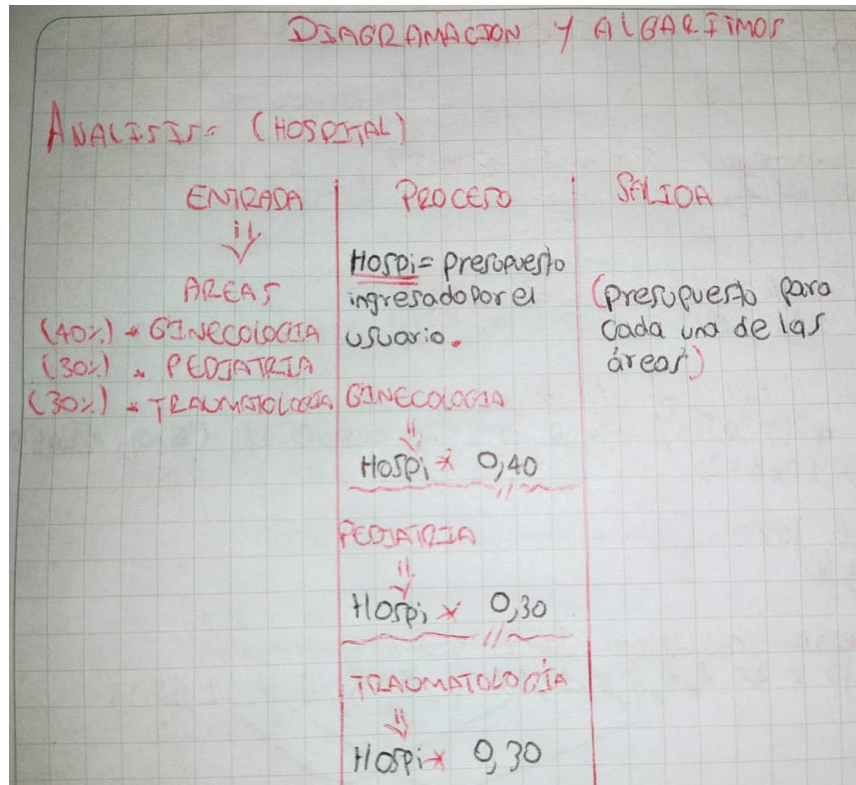 DIAGRAMACION Y ALGARITMOS
ANALISIS= (HOSPITAL)
ENTRADA
AREAS
(40%) * GINECOLOGIA
(30%) * PEDIATRIA
(30%) * TRAUMATOLOGIA
PROCESO
Hospi= presupuesto
ingresado por el
usuario.
GINECOLOGIA
Hospi * 0,40
PEDIATRIA
Hospi * 0,30
TRAUMATOLOGÍA
Hospi * 0,30
SALIDA
(presupuesto para
cada una de las
áreas)